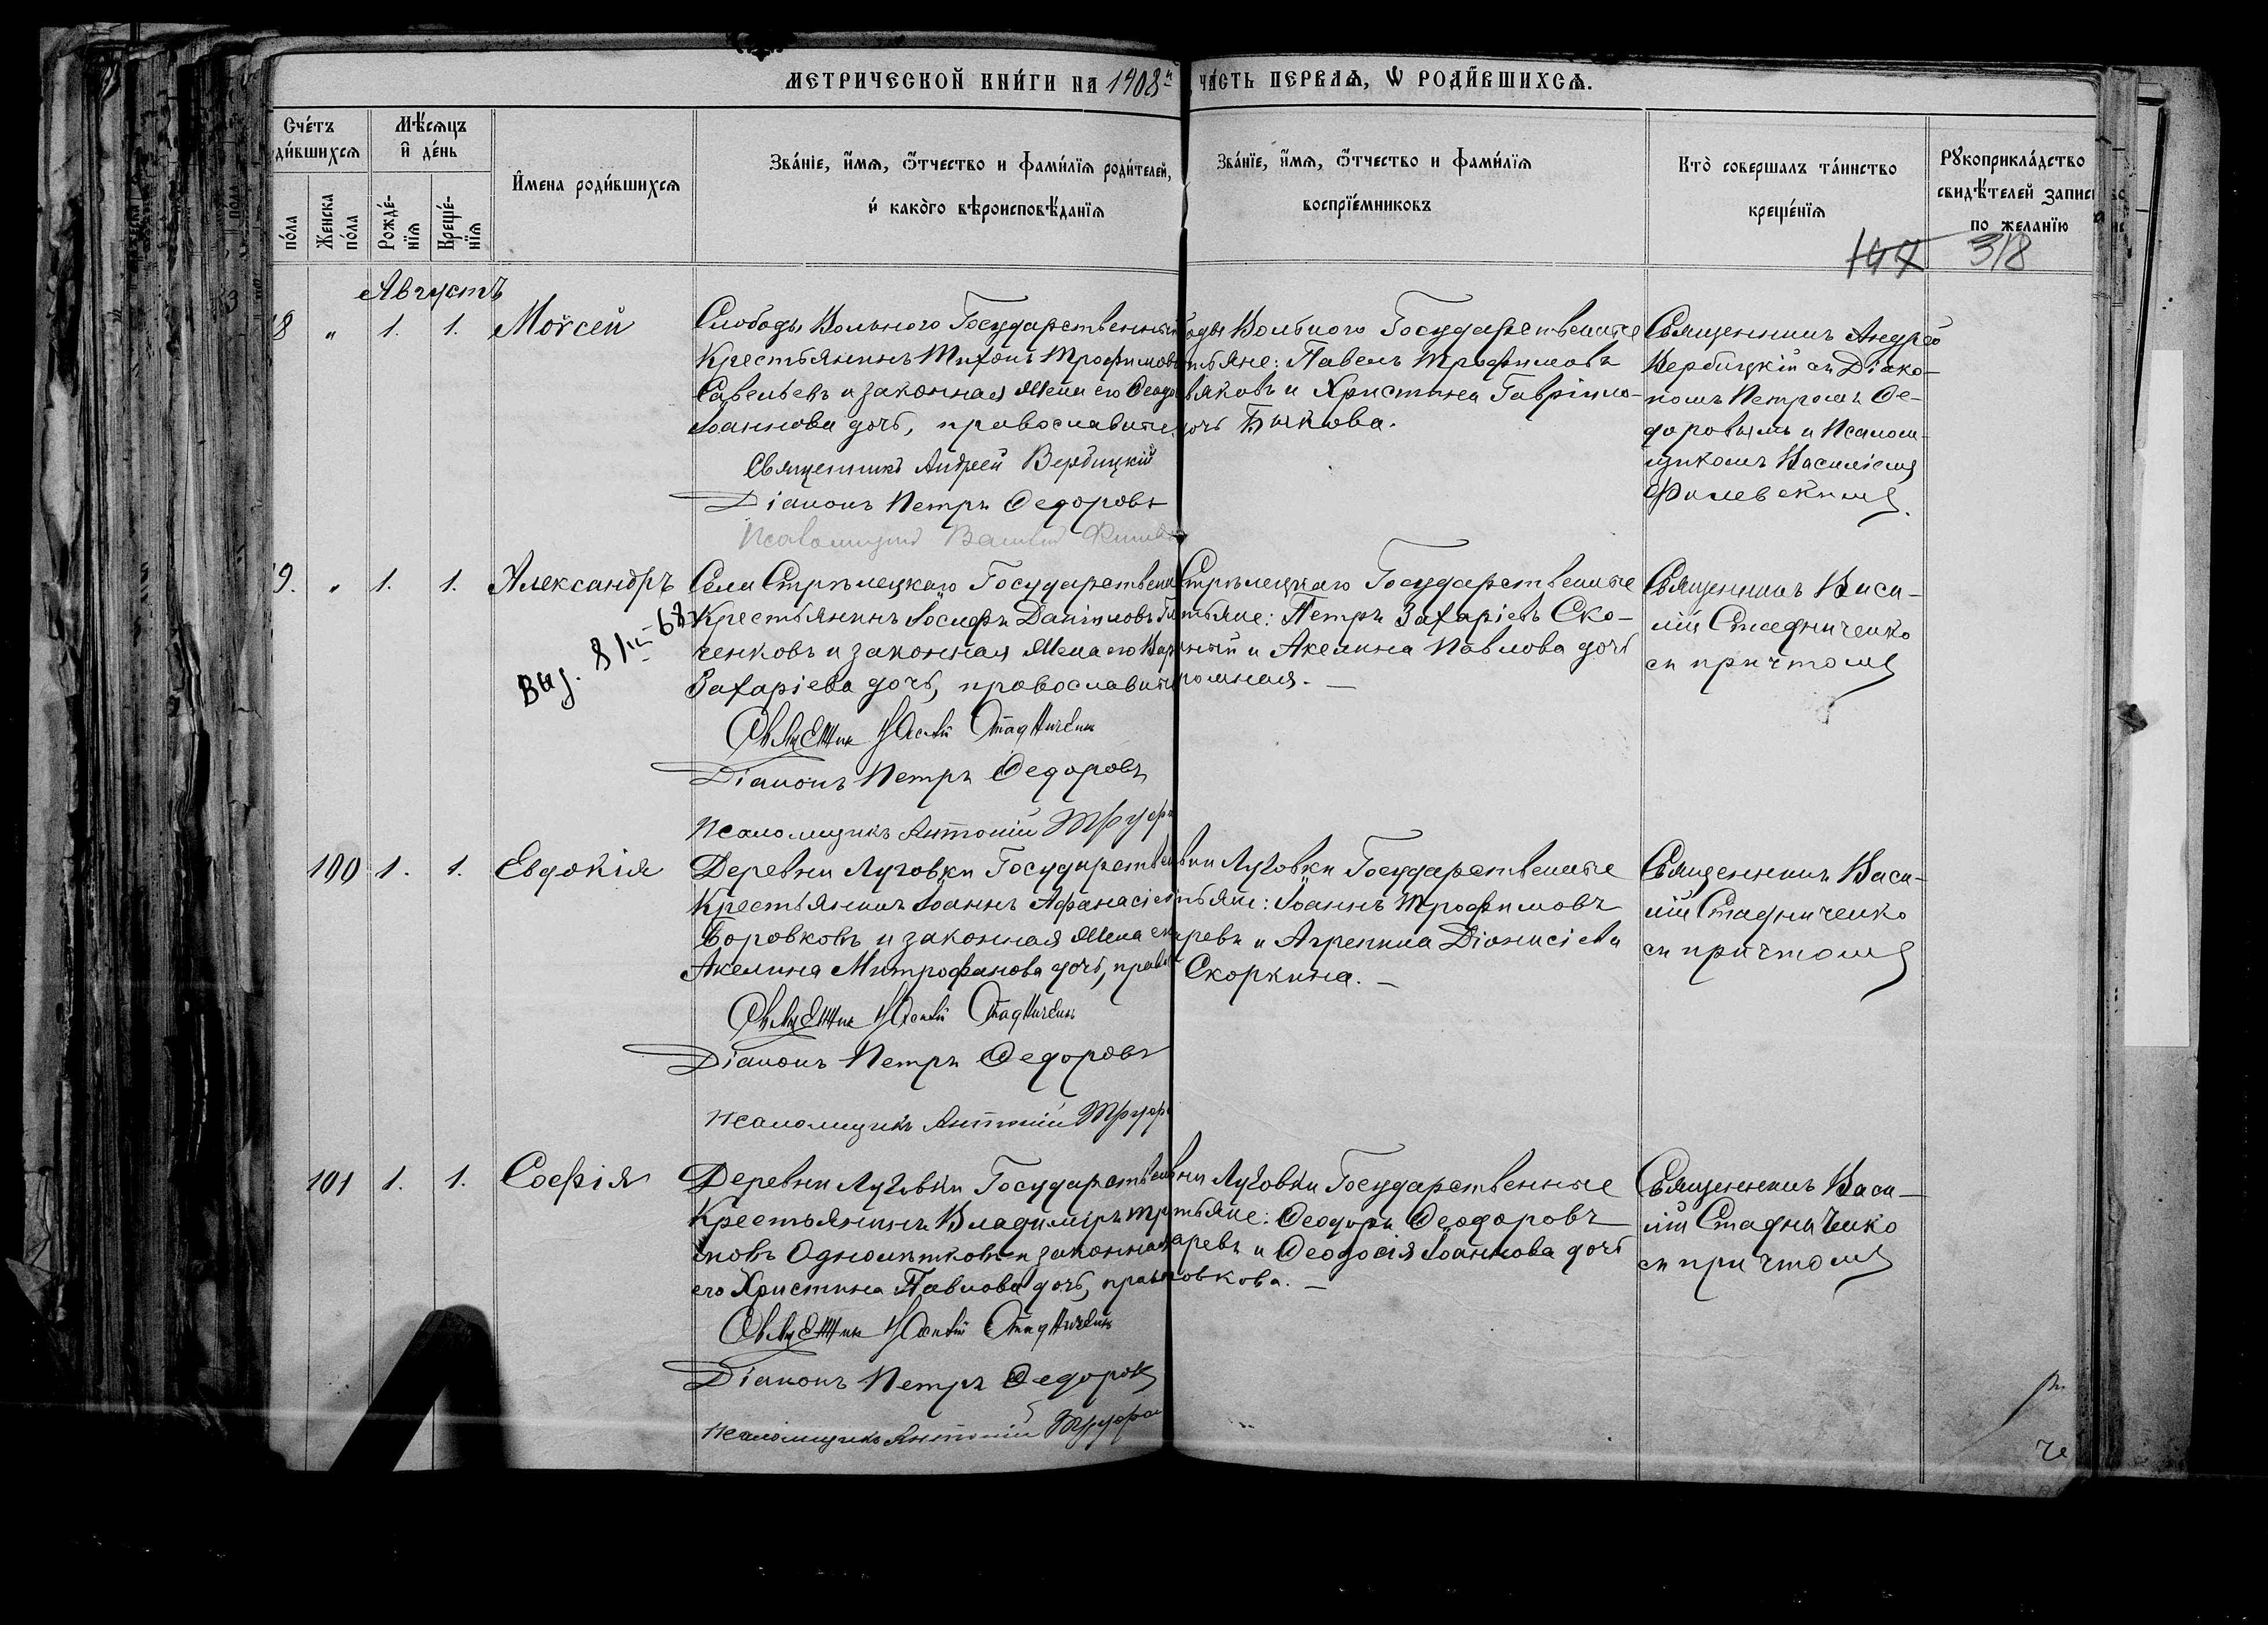 МЕТРИЧЕСКОЙ КНИ́ГИ НА 1908й
ЧА́СТЬ ПЕРВАѦ, Ѡ҆ РОДИ́ВШИХСѦ.
Сче́тъ
ди́вшихсѧ
по́ла
Женска по́ла
Мѣ́сѧцъ
и҆ де́нь
Рожде́нїѧ
Креще́нїѧ
И҆мена роди́вшихсѧ
Зва́нїе, и҆́мѧ, ѻ҆́тчество и фами́лїѧ роди́телей,
и҆ како́го вѣроисповѣ́данїѧ
Зва́нїе, и҆́мѧ, ѻ҆́тчество и фами́лїѧ
воспрїе́мниковъ
Кто̀ совершалъ та́инство
креще́нїѧ
Рꙋкоприкла́дство
свидѣ́телей запис
по желанїю
318
Августъ
8 " 1. 1. Моѵсей
Слободы Вольного Государственный
Крестьянинъ Тихонъ Трофимовъ
Савельевъ и законная жена его Ѳеодо
Іоаннова дочь, православные.
Священникъ Андрей Вербицкій
Діаконъ Петръ Ѳедоровъ
Псаломщикъ Василій
оды Вольного Государственные
тьяне: Павелъ Трофимовъ
ряковъ и Христина Гавріило-
очь Быкова.
Священникъ Андрей
Вербицкій съ Діако-
номъ Петромъ Ѳе-
доровымъ и Псалом-
щикомъ Василіемъ
Филевскимъ.
9. " 1. 1. Александръ
Выд. 8/III 68
Села Стрѣлецкаго Государствен
Крестьянинъ Іосифъ Даніиловъ
ченковъ и законная жена его Вар
Захаріева дочь, православные
Священникъ Василій Стадниченко
Діаконъ Петръ Ѳедоровъ
Псаломщикъ Антоній
Стрѣлецкаго Государственные
тьяне: Петръ Захаріевъ Ско-
ный и Акелина Павлова дочь
ромная. —
Священникъ Васи-
лій Стадниченко
съ причтомъ
100 1. 1. Евдокія
Деревни Луговки Государствен
Крестьянинъ Іоаннъ Аѳанасіев
Боровковъ и законная жена ег
Акелина Митрофанова дочь, прав
Священникъ Василій Стадниченко
Діаконъ Петръ Ѳедоровъ
Псаломщикъ Антоній
вни Луговки Государственные
тьяне: Іоаннъ Трофимовъ
ревъ и Агрепина Діонисіева
Скоркина. —
Священникъ Васи-
лій Стадниченко
съ причтомъ
101 1. 1. Софія
Деревни Луговки Государствен
Крестьянинъ Владиміръ Тр
мовъ Однолѣтковъ и законная
его Христина Павлова дочь, прав
Священникъ Василій Стадниченко
Діаконъ Петръ Ѳедоровъ
Псаломщикъ Антоній
вни Луговки Государственные
тьяне: Ѳеодоръ Ѳеодоровъ
аревъ и Ѳеодосія Іоаннова дочь
ровкова. —
Священникъ Васи-
лій Стадниченко
съ причтомъ